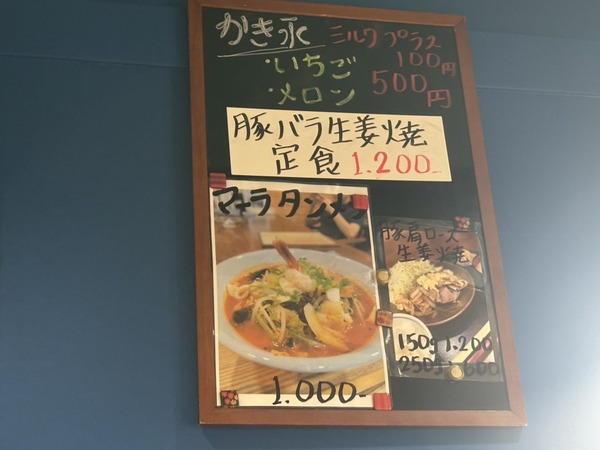 かき氷
ミルクプラス
100円
・いちご
・メロン
500円
豚バラ生姜焼
定食 1.200-
マーラタンメン
1.000-
豚肩ロース
生姜焼
150g 1.200
250g 1.600